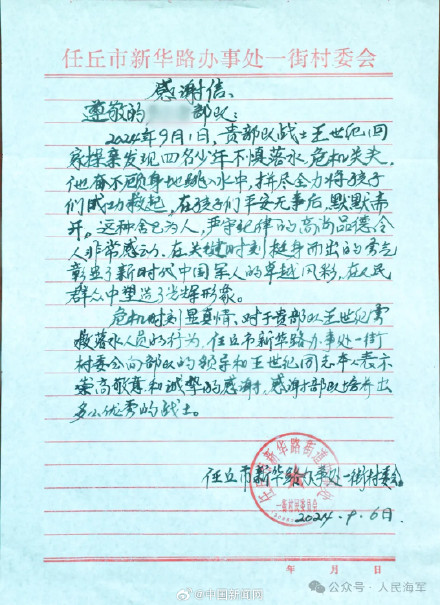 任丘市新华路办事处一街村委会
感谢信
尊敬的 部队:
2024年9月1日,贵部队战士王世纪回
家探亲发现四名少年不慎落水,危机关头,
他奋不顾身地跳入水中,拼尽全力将孩子
们成功救起,在孩子们平安无事后,默默离
开。这种舍己为人,严守纪律的高尚品德令
人非常感动,在关键时刻挺身而出的勇气
彰显了新时代中国军人的卓越风彩,在人民
群众中塑造了光辉形象。
危机时刻显真情,对于贵部队王世纪勇
救落水人员的行为,任丘市新华路办事处一街
村委会向部队的领导和王世纪同志本人表示
崇高敬意和诚挚的感谢,感谢部队培养出
多么优秀的战士。
任丘市新华路办事处一街村委会。
2024.9.6日.
任丘市新华路街道
一街村民委员会
年 月 日
@中国新闻网
公众号·人民海军